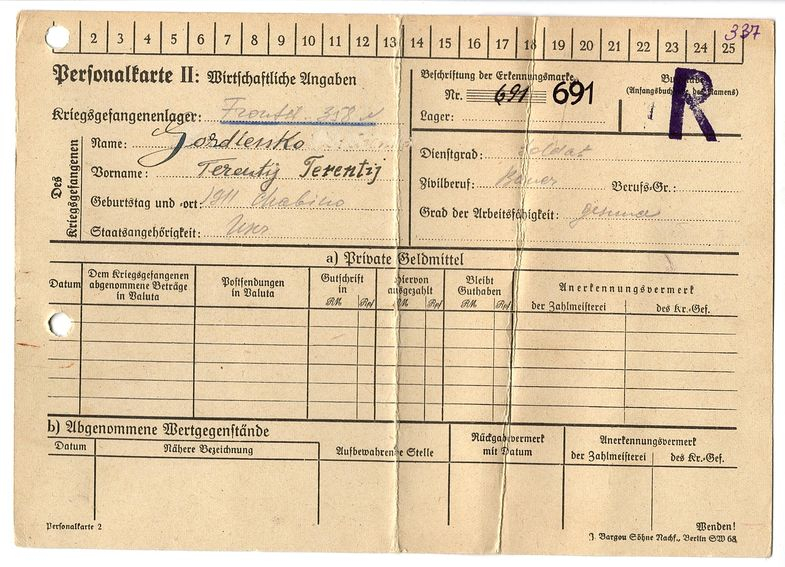 337
2 3 4 5 6 7 8 9 10 11 12 13 14 15 16 17 18 19 20 21 22 23 24 25
Personalkarte II: Wirtschaftliche Angaben
Beschriftung der Erkennungsmarke
Nr. 691 691
Lager:
(Anfangsbuchstabe des Namens)
R
Kriegsgefangenenlager:
Des Kriegsgefangenen
Name: Gordienko
Vorname: Terentij Terentij
Geburtstag und -ort: 1911
Staatsangehörigkeit: Ukr
Dienstgrad: Soldat
Zivilberuf: Bauer Berufs-Gr.:
Grad der Arbeitsfähigkeit: gesund
a) Private Geldmittel
Datum
Dem Kriegsgefangenen abgenommene Beträge in Valuta
Postsendungen in Valuta
Gutschrift in
RM Rpf
Hiervon ausgezahlt
RM Rpf
Bleibt Guthaben
RM Rpf
Anerkennungsvermerk
der Zahlmeisterei
des Kr.-Gef.
b) Abgenommene Wertgegenstände
Datum
Nähere Bezeichnung
Aufbewahrende Stelle
Rückgabevermerk mit Datum
Anerkennungsvermerk
der Zahlmeisterei
des Kr.-Gef.
Personalkarte 2
Wenden!
J. Bargou Söhne Nachf., Berlin SW 68